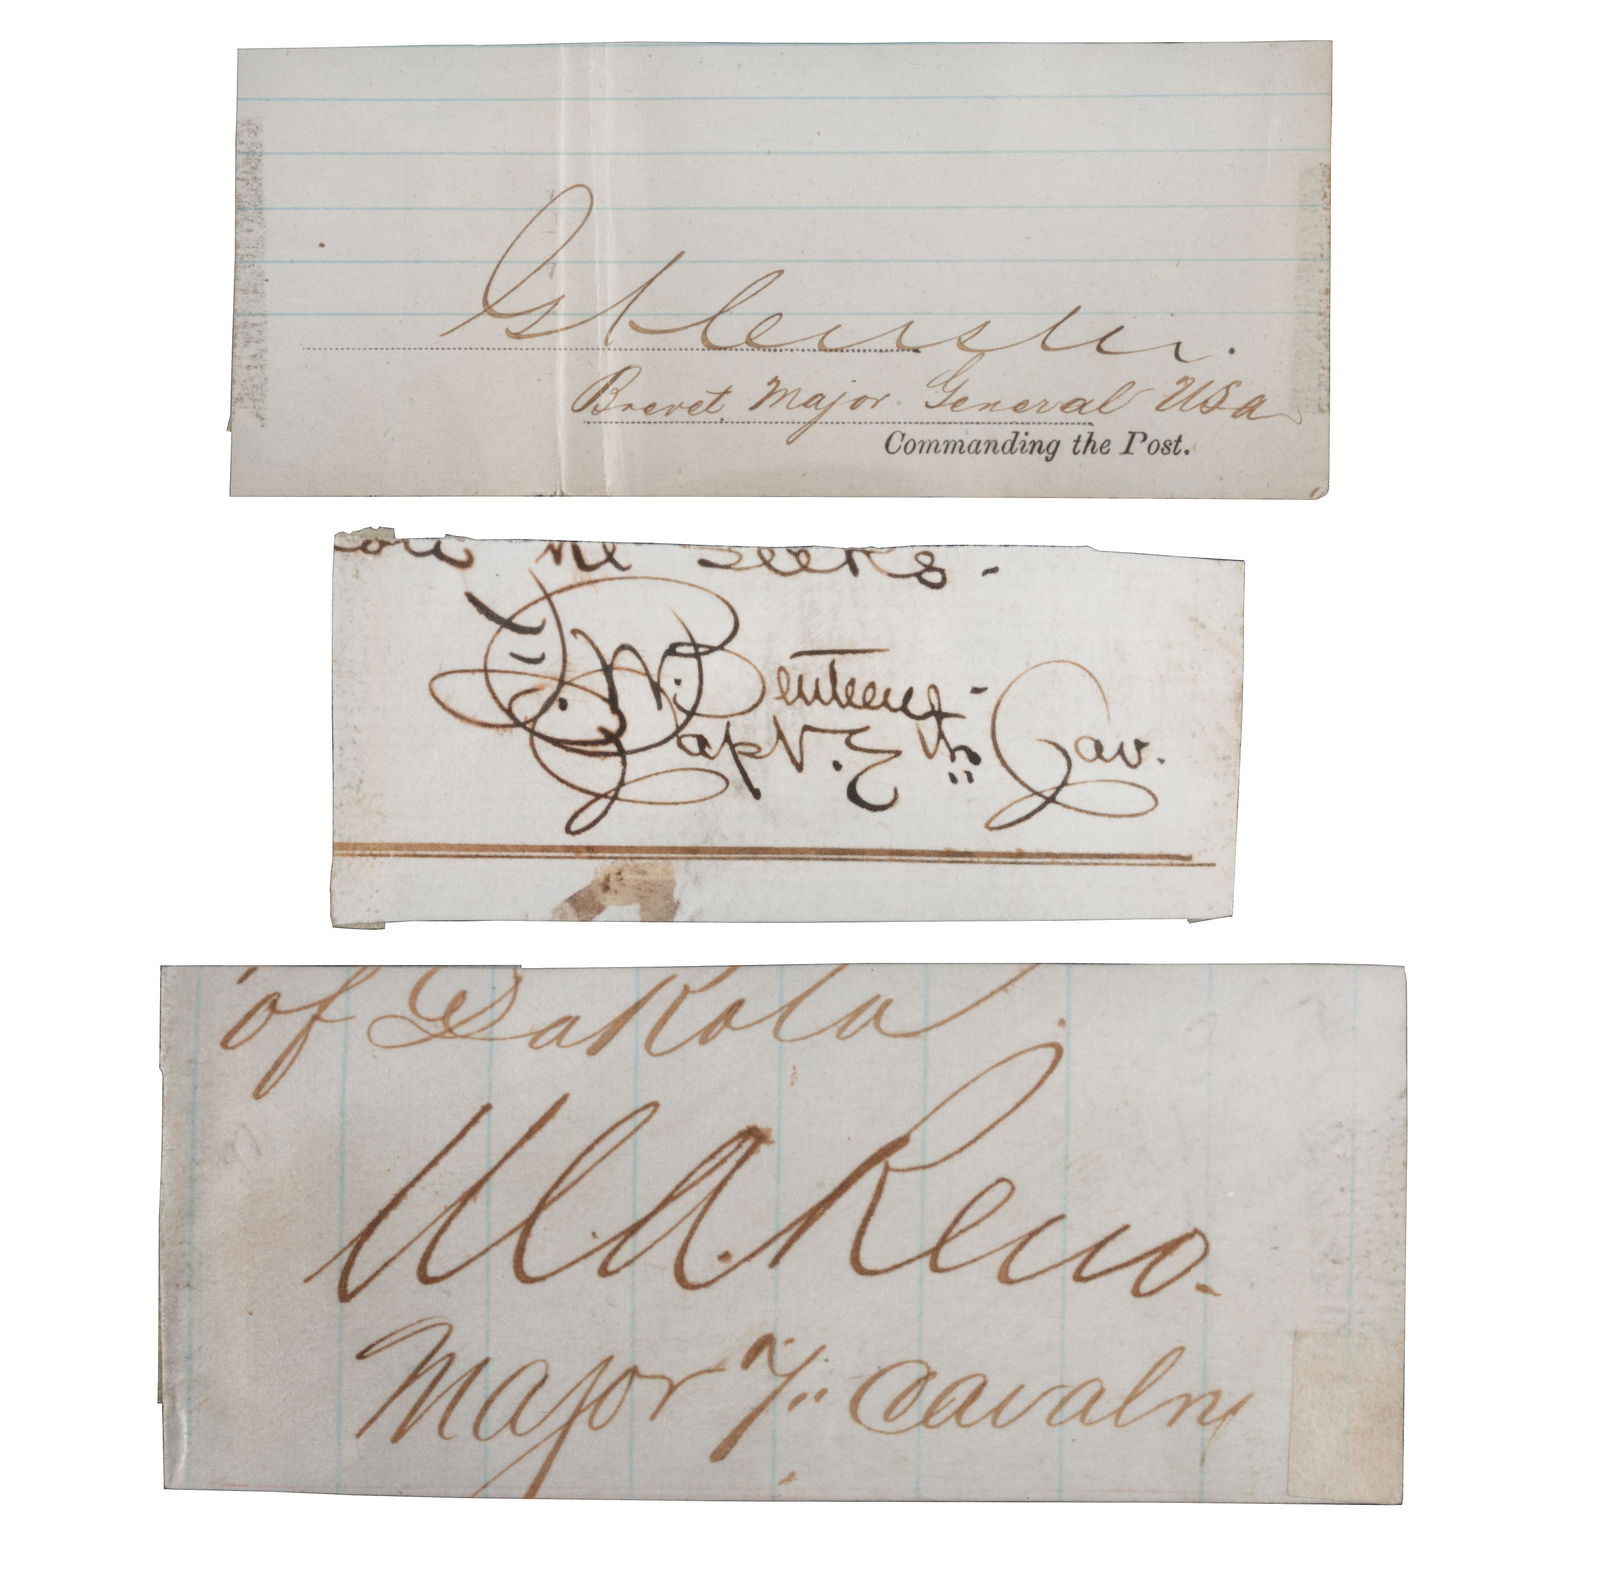 GACuster.
Brevet Major General USA
Commanding the Post.
he seeks-
F.W. Benteen-
Capt. 7th Cav.
of Dakota.
M.A. Reno.
Major 7" Cavalry